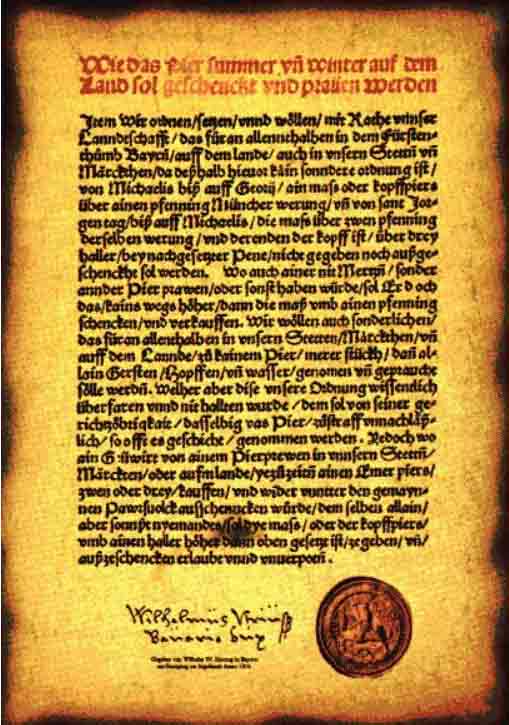 Wie das Pier summer vñ winter auf dem
Land sol geschenckt vnd prauen werden
Item Wir ordnen/setzen/vnnd wöllen/mit Rathe vnnser
Lanndtschafft/das für an allennthalben in dem Fürsten-
thumb Bayrn/auff dem lande/auch in vnsern Stettñ vñ
Märckthen/da deßhalb hieuor kain sonndere ordnung ist/
von Michaelis biß auff Georij/ain mass oder kopffpiers
über ainen pfenning Müncher werung/vñ von sant Jor-
gentag/biß auff Michaelis/die mass über zwen pfenning
derselben werung/vnd derenden der kopff ist/über drey
haller/bey nachgesetzter Pene/nicht gegeben noch außge-
schenckht sol werden. Wo auch ainer nit Mertzñ/sonder
annder Pier prawen/oder sonst haben würde/sol Er doch
das/kains wegs höher/dann die maß vmb ainen pfenning
schencken/vnd verkauffen. Wir wöllen auch sonderlichen/
das für an allenthalben in vnsern Stetten/Märckthen/vñ
auff dem Lannde/zů kainem Pier/merer stückh/dañ al-
lain Gersten/Hopffen/vñ wasser/genomen vñ gepraucht
sölle werdñ. Welher aber dise vnsere Ordnung wissendlich
überfaren vnnd nit hallten wurde/dem sol von seiner ge-
richtzöbrigkait/dasselbig vas Pier/zůstraff vnnachläß-
lich/so offt es geschicht/genommen werden. Yedoch wo
ain Güwirt von ainem Pierprewen in vnnsern Stettñ/
Märckten/oder aufm lande/yezůzeitñ ainen Emer piers/
zwen oder drey/kauffen/vnd wider vnntter den gemayn-
nen Pawrsuolck ausschenncken würde/dem selben allain/
aber sonnst nyemandes/sol dye mass/oder der kopffpiers/
vmb ainen haller höher dann oben gesetzt ist/ze geben/vñ/
außzeschencken erlaubt vnnd vnuerpotñ.
Wilhelmus
Gegeben von Wilhelm IV. Herzog in Bayern
am Georgitag zu Ingolstadt Anno 1516